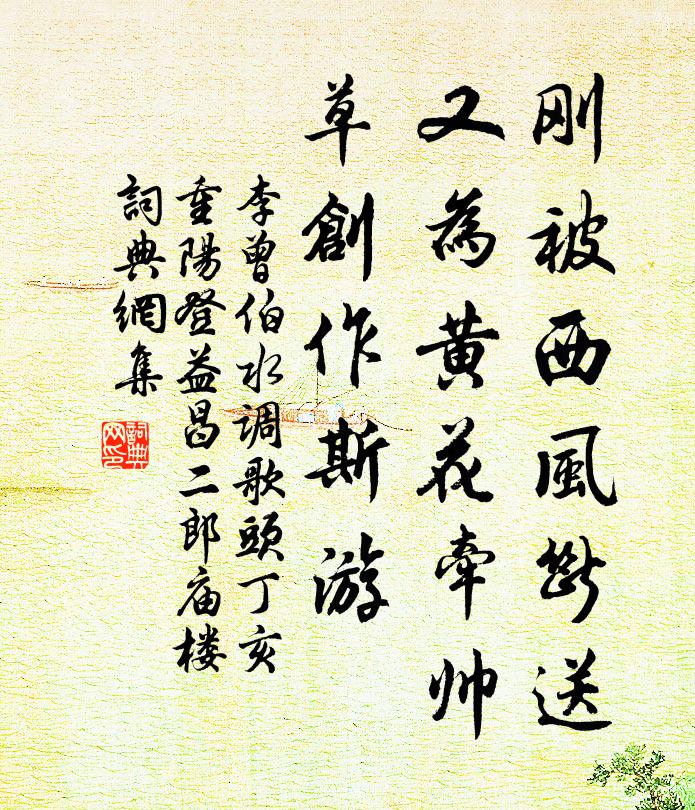 刚被西風断送
又為黄花牽帅
草創作斯游
李曾伯水調歌頭丁亥
重陽登益昌二郎庙楼
詞典網集
詞典网印